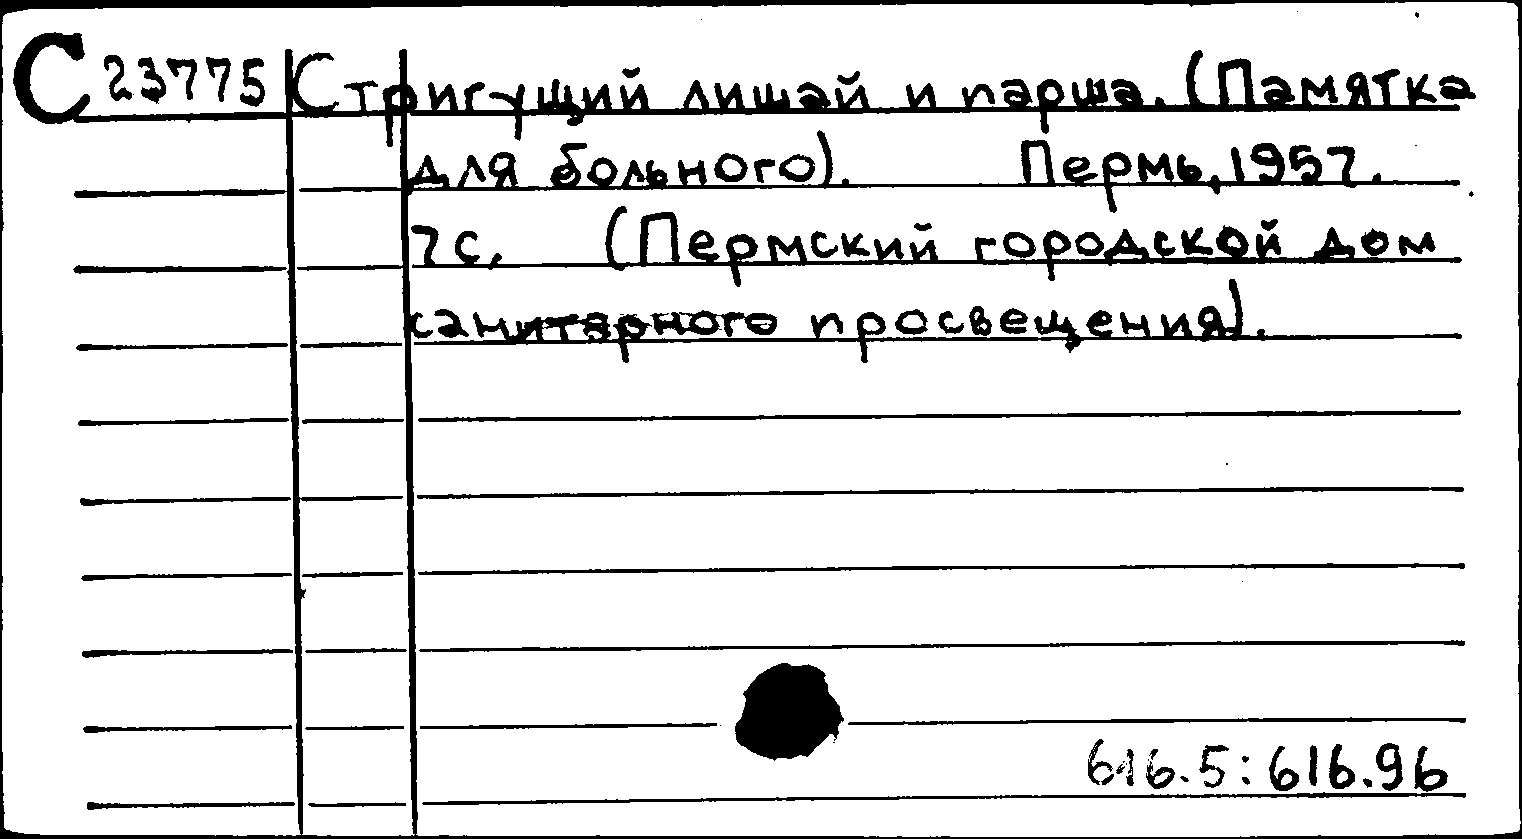 С 23775 Стригущий лишай и парша. (Памятка
для больного). Пермь, 1957.
7 с. (Пермский городской дом
санитарного просвещения).
616.5:616.96